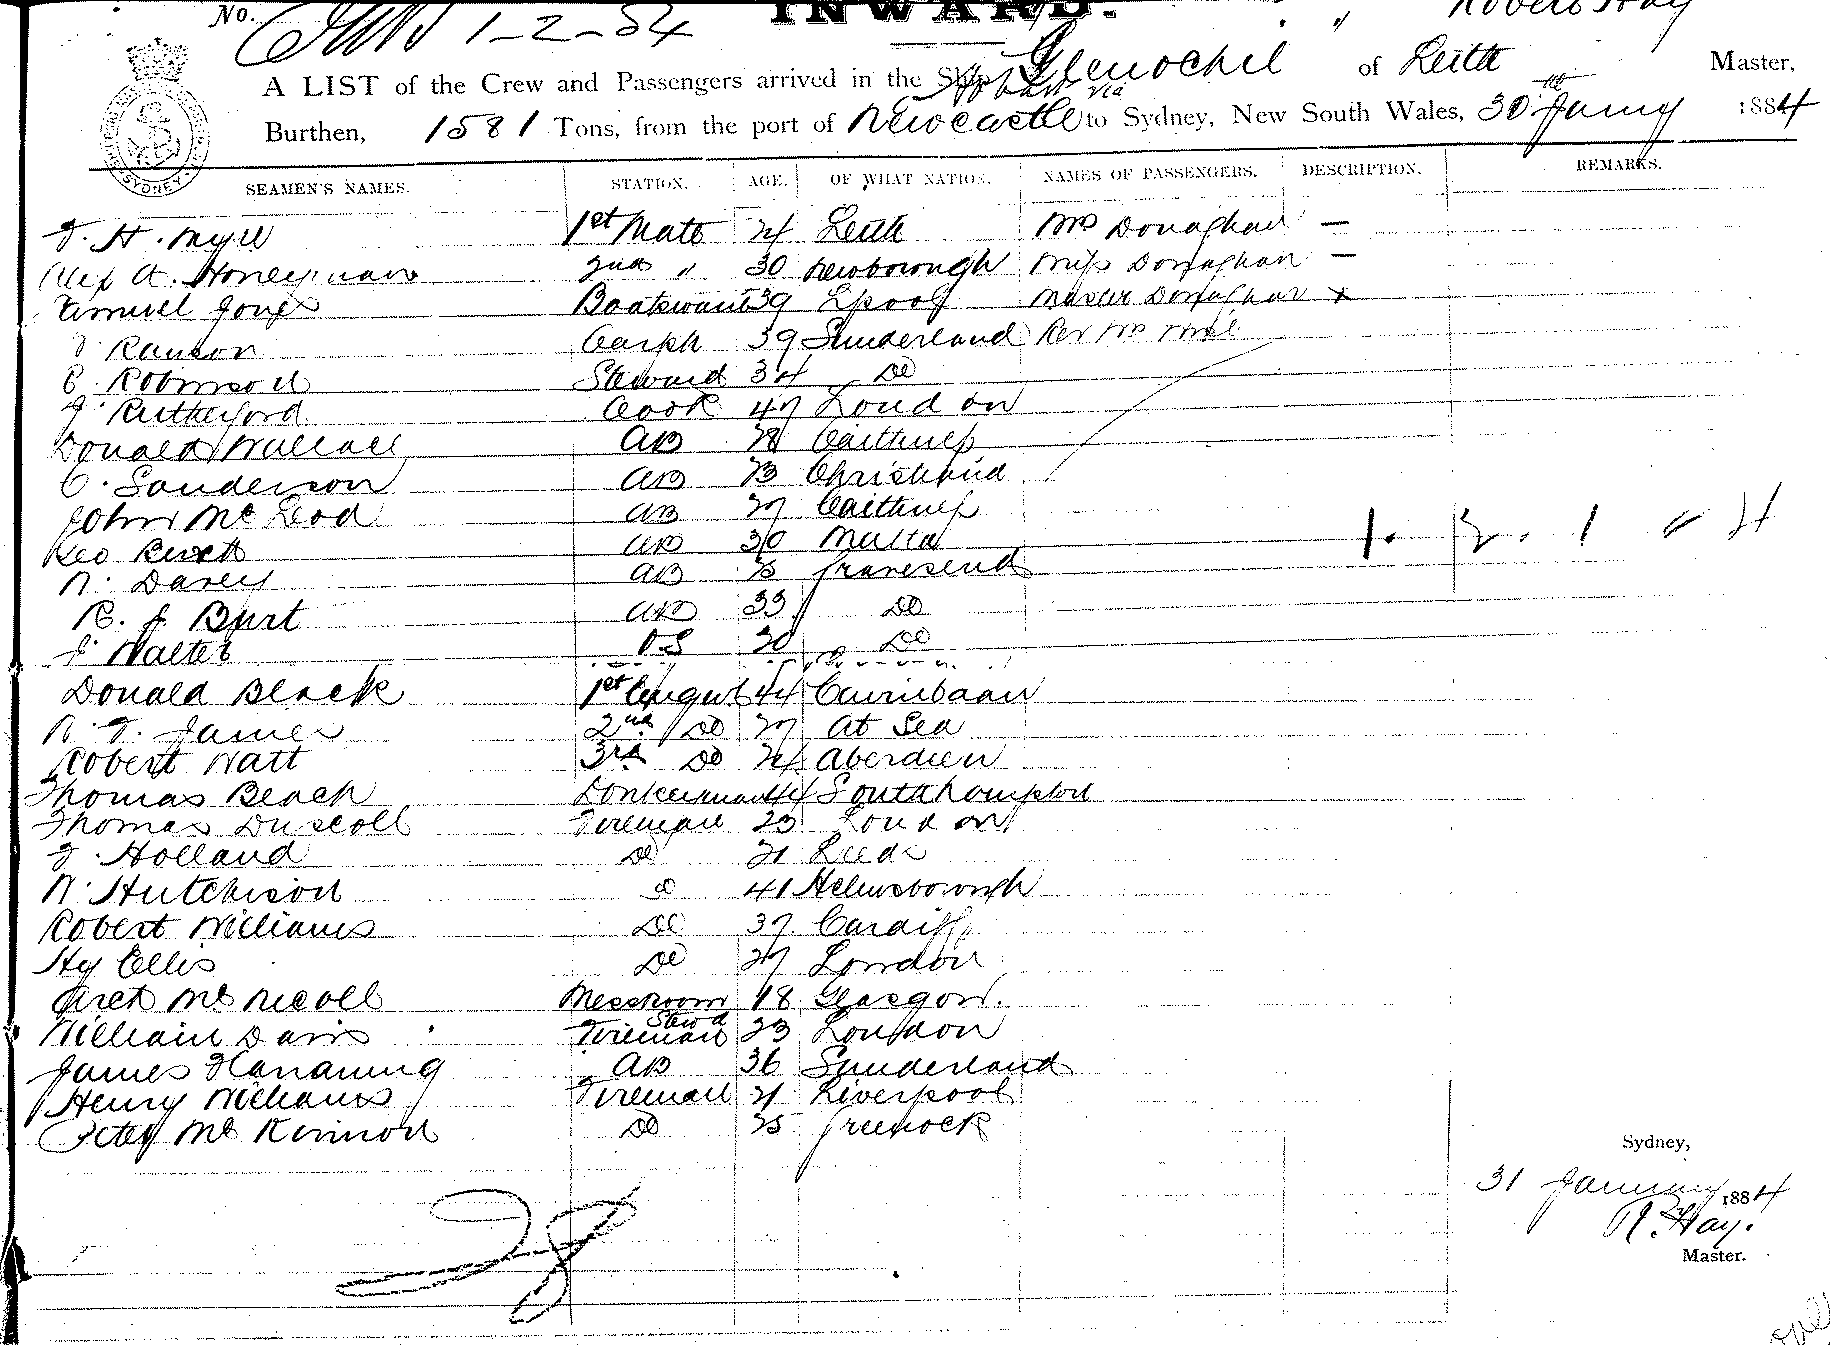 No.
1-2-84
INWARD.
" Robert Hay
A LIST of the Crew and Passengers arrived in the Ship Glenochil of Leith Master,
Hobart via
Burthen, 1581 Tons, from the port of Newcastle to Sydney, New South Wales, 30th Jany 1884
SYDNEY
SEAMEN'S NAMES. STATION. AGE. OF WHAT NATION. NAMES OF PASSENGERS. DESCRIPTION. REMARKS.
1st Mate 24 Leith Mrs Donaghan —
Alex A. Honeyman 2nd " 30 Newborough Miss Donaghan —
Samuel Jones 39 Lpool Master Donaghan
Ranson Carp 39 Sunderland Rev Mr
Robinson Steward 34 Do
J. Rutherford Cook 47 London
Donald Wallace AB 28 Caithness
C. Sanderson AB 23
John McLeod AB 27 Caithness
Geo AB 30 Malta
W. Davey AB Gravesend
R. J. Burt AB 33 Do
J. Walter OS 20 Do
Donald Black 1st 44
W. J. James 2nd Do 27 At Sea
Robert Watt 3rd Do 24 Aberdeen
Thomas Beach Donkeyman 44 Southampton
Thomas Duscoll Fireman 23 London
J. Holland Do 21 Leeds
W. Hutchison Do 41 Helensborough
Robert Williams Do 37 Cardiff
Hy Ellis Do 27 London
McNicoll Messroom Stewd 18 Glasgow.
William Davis Fireman 23 London
James AB 36 Sunderland
Henry Williams Fireman 21 Liverpool
Peter McKinnon Do 25 Greenock
Sydney,
31 January 1884
R. Hay.
Master.